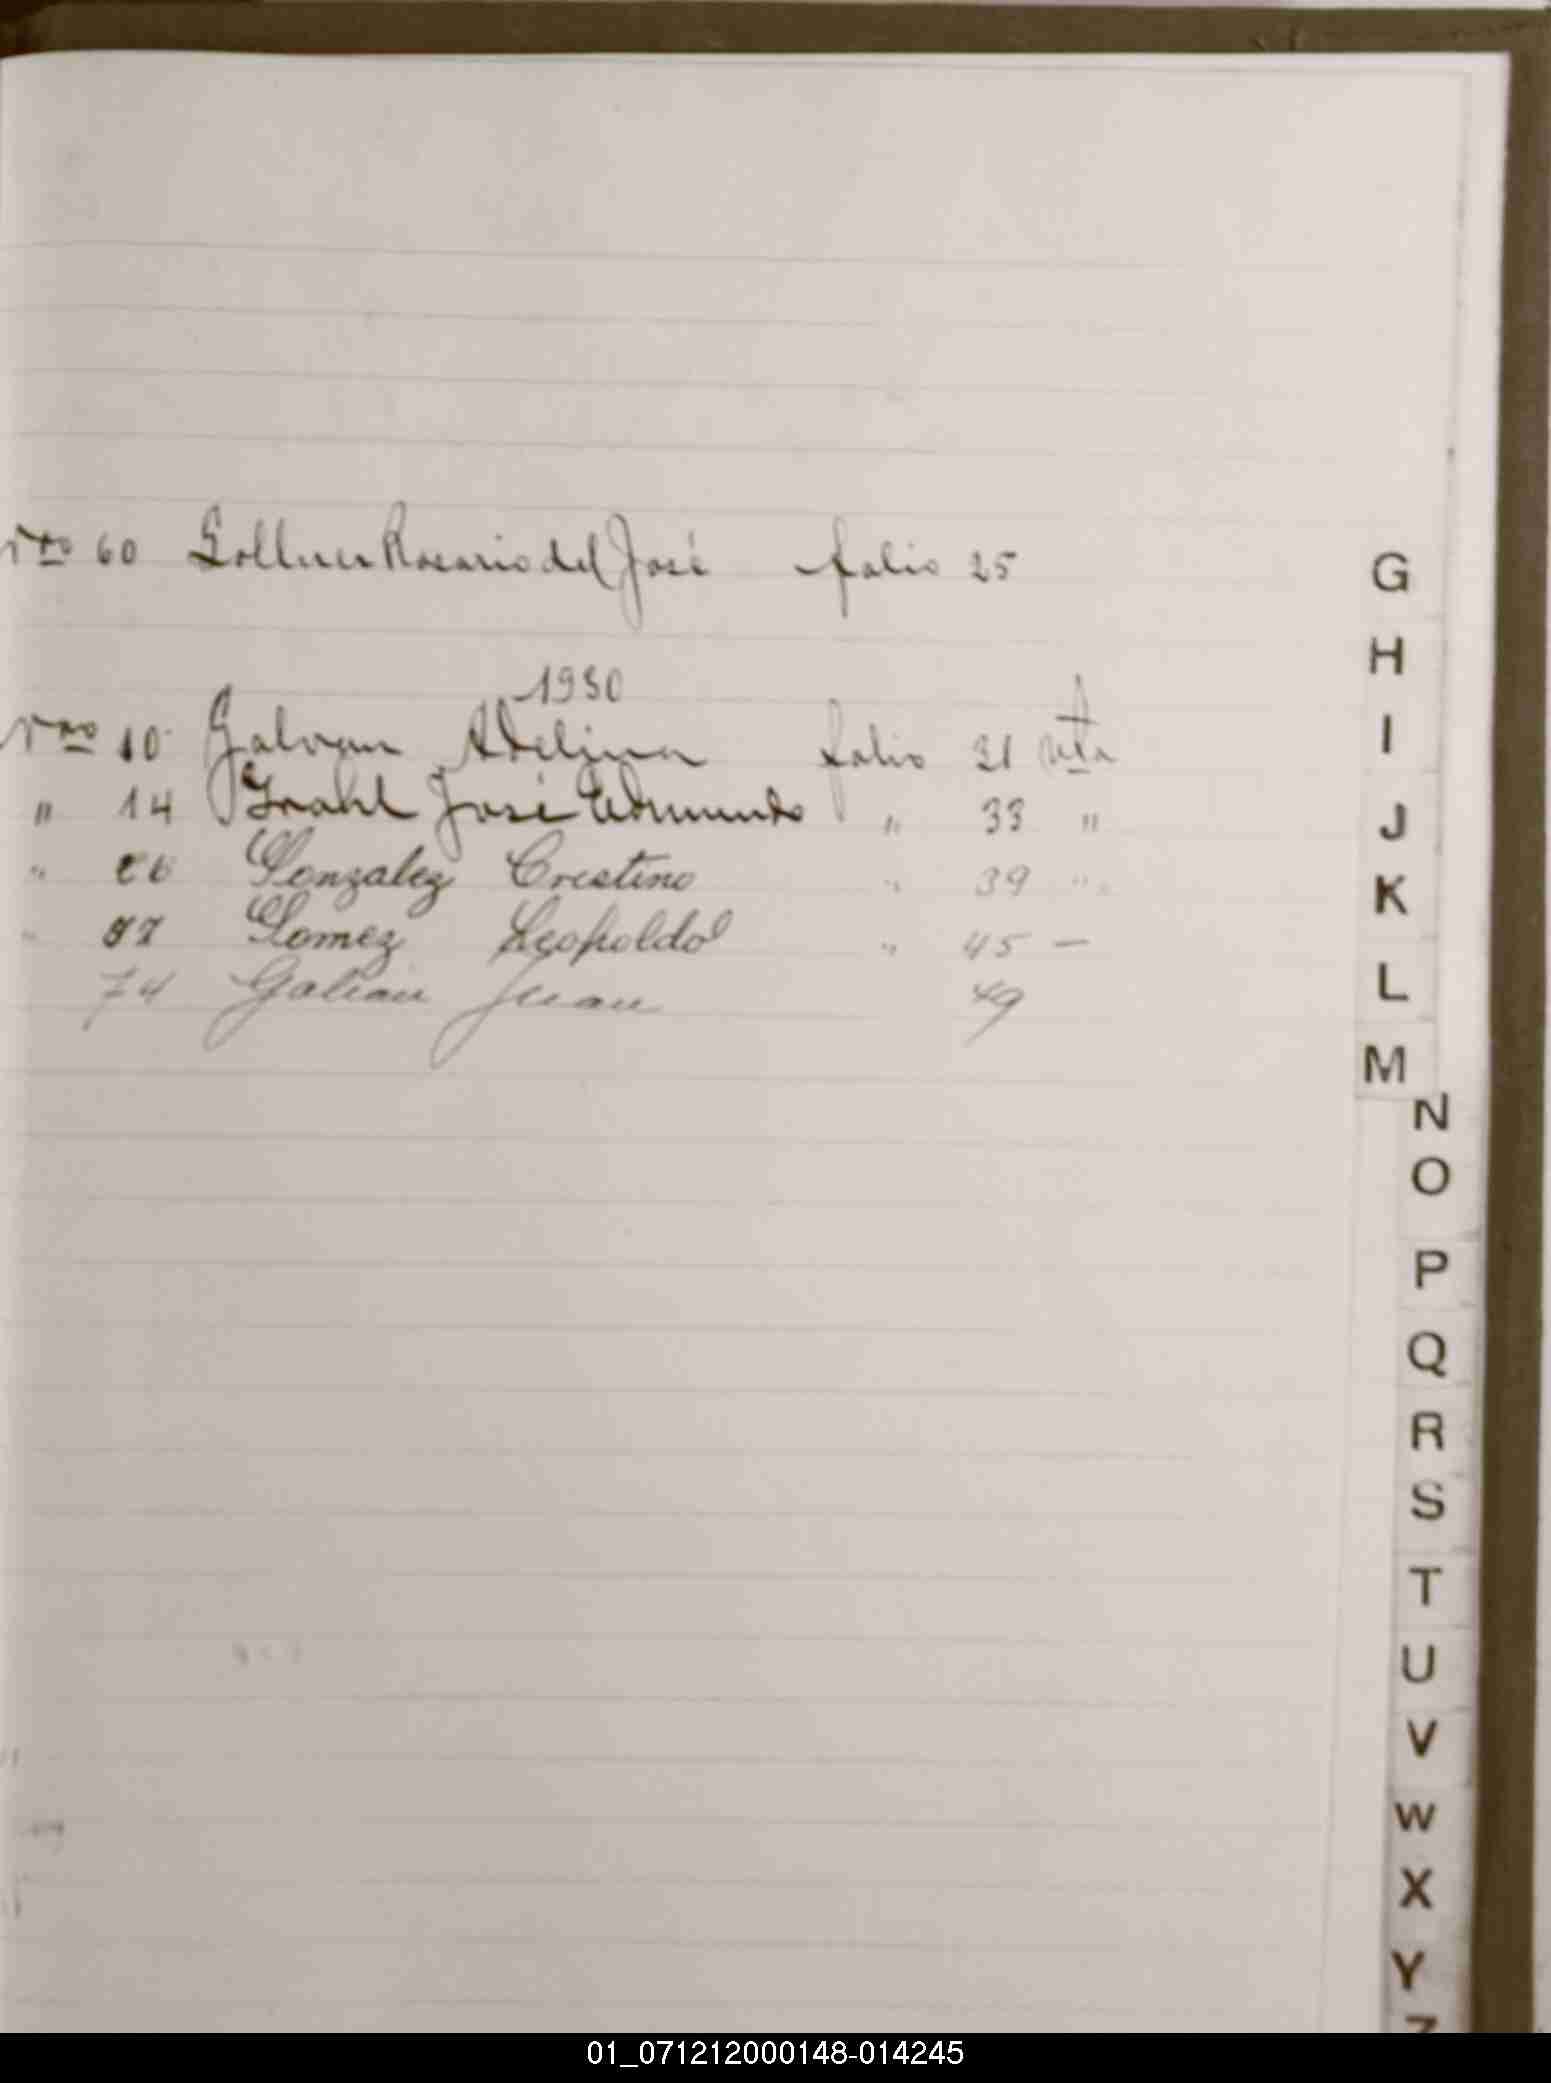 Nro 60 Gollner Rosario del José folio 25
1930
Nro 10 Galvan Adelina folio 31 vta
" 14 Grahl José Edmundo " 33 "
" 26 Gonzalez Crestino " 39 "
" Gomez Leopoldo " 45 —
74 Galian Juan 49
G
H
I
J
K
L
M
N
O
P
Q
R
S
T
U
V
W
X
Y
Z
01_071212000148-014245